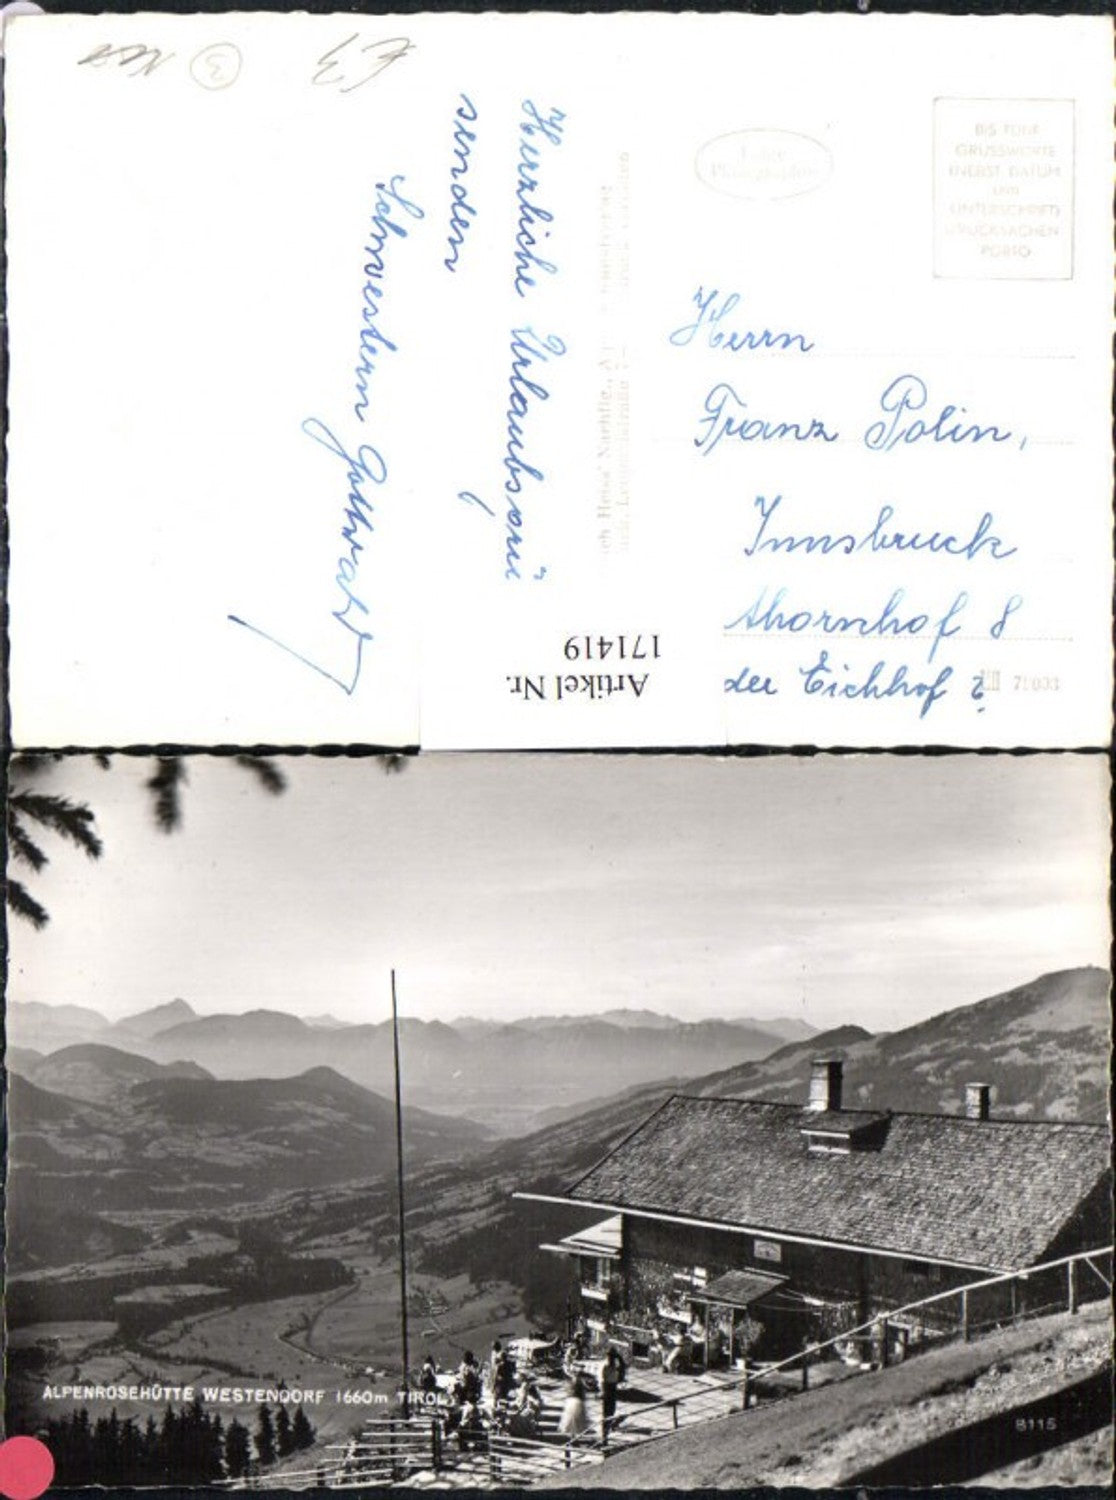 Herzliche Urlaubsgrüße
senden
Schwestern Gottwald
Echte
Photographie
BIS FÜNF
GRUSSWORTE
(NEBST DATUM
UND
UNTERSCHRIFT)
DRUCKSACHEN
PORTO
Herrn
Franz Polin,
Innsbruck
Ahornhof 8
der Eichhof ?
Artikel Nr.
171419
3
€3
ALPENROSEHÜTTE WESTENDORF 1660m TIROL
8115